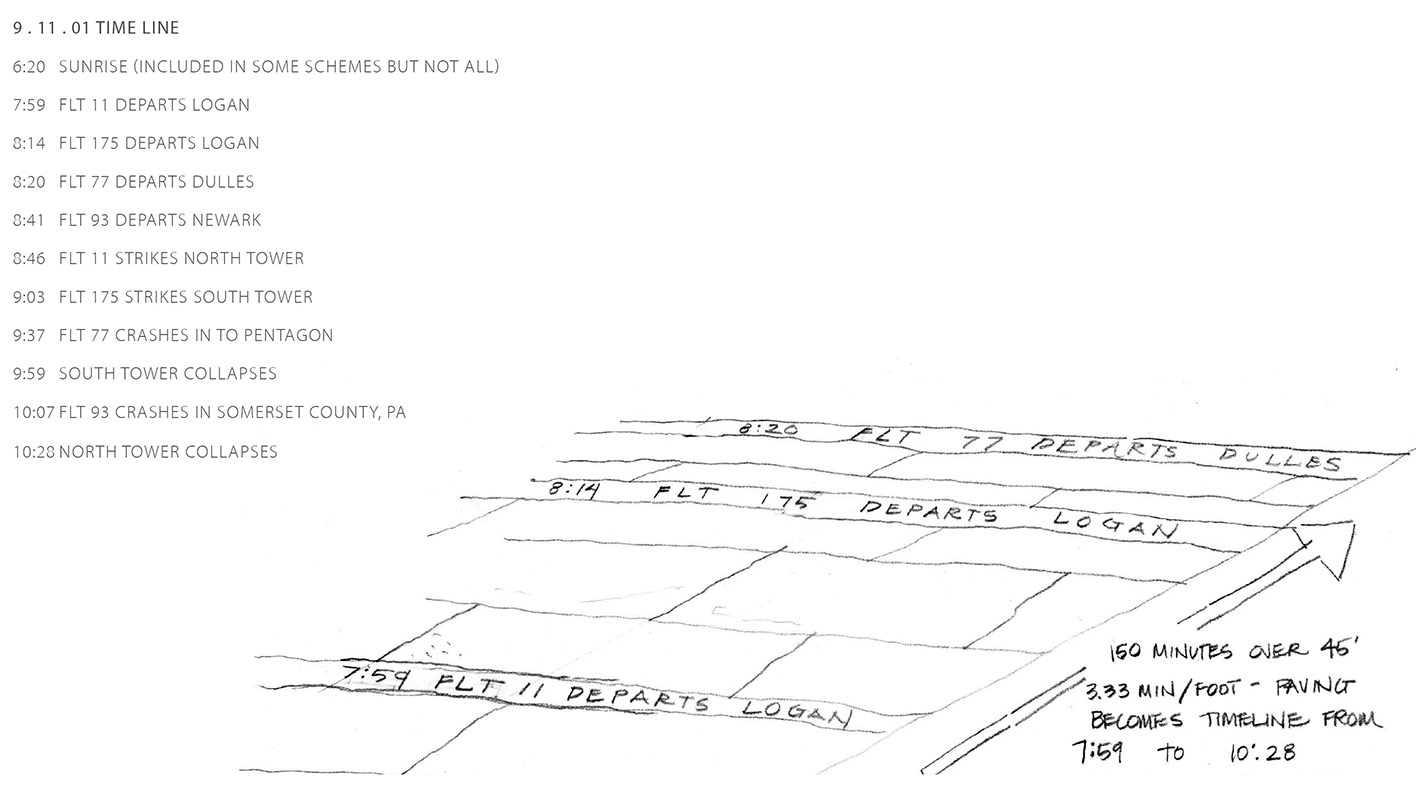 9 . 11 . 01 TIME LINE
6:20 SUNRISE (INCLUDED IN SOME SCHEMES BUT NOT ALL)
7:59 FLT 11 DEPARTS LOGAN
8:14 FLT 175 DEPARTS LOGAN
8:20 FLT 77 DEPARTS DULLES
8:41 FLT 93 DEPARTS NEWARK
8:46 FLT 11 STRIKES NORTH TOWER
9:03 FLT 175 STRIKES SOUTH TOWER
9:37 FLT 77 CRASHES IN TO PENTAGON
9:59 SOUTH TOWER COLLAPSES
10:07 FLT 93 CRASHES IN SOMERSET COUNTY, PA
10:28 NORTH TOWER COLLAPSES
8:20 FLT 77 DEPARTS DULLES
8:14 FLT 175 DEPARTS LOGAN
7:59 FLT 11 DEPARTS LOGAN
150 MINUTES OVER 45'
3.33 MIN/FOOT - PAVING
BECOMES TIMELINE FROM
7:59 TO 10:28